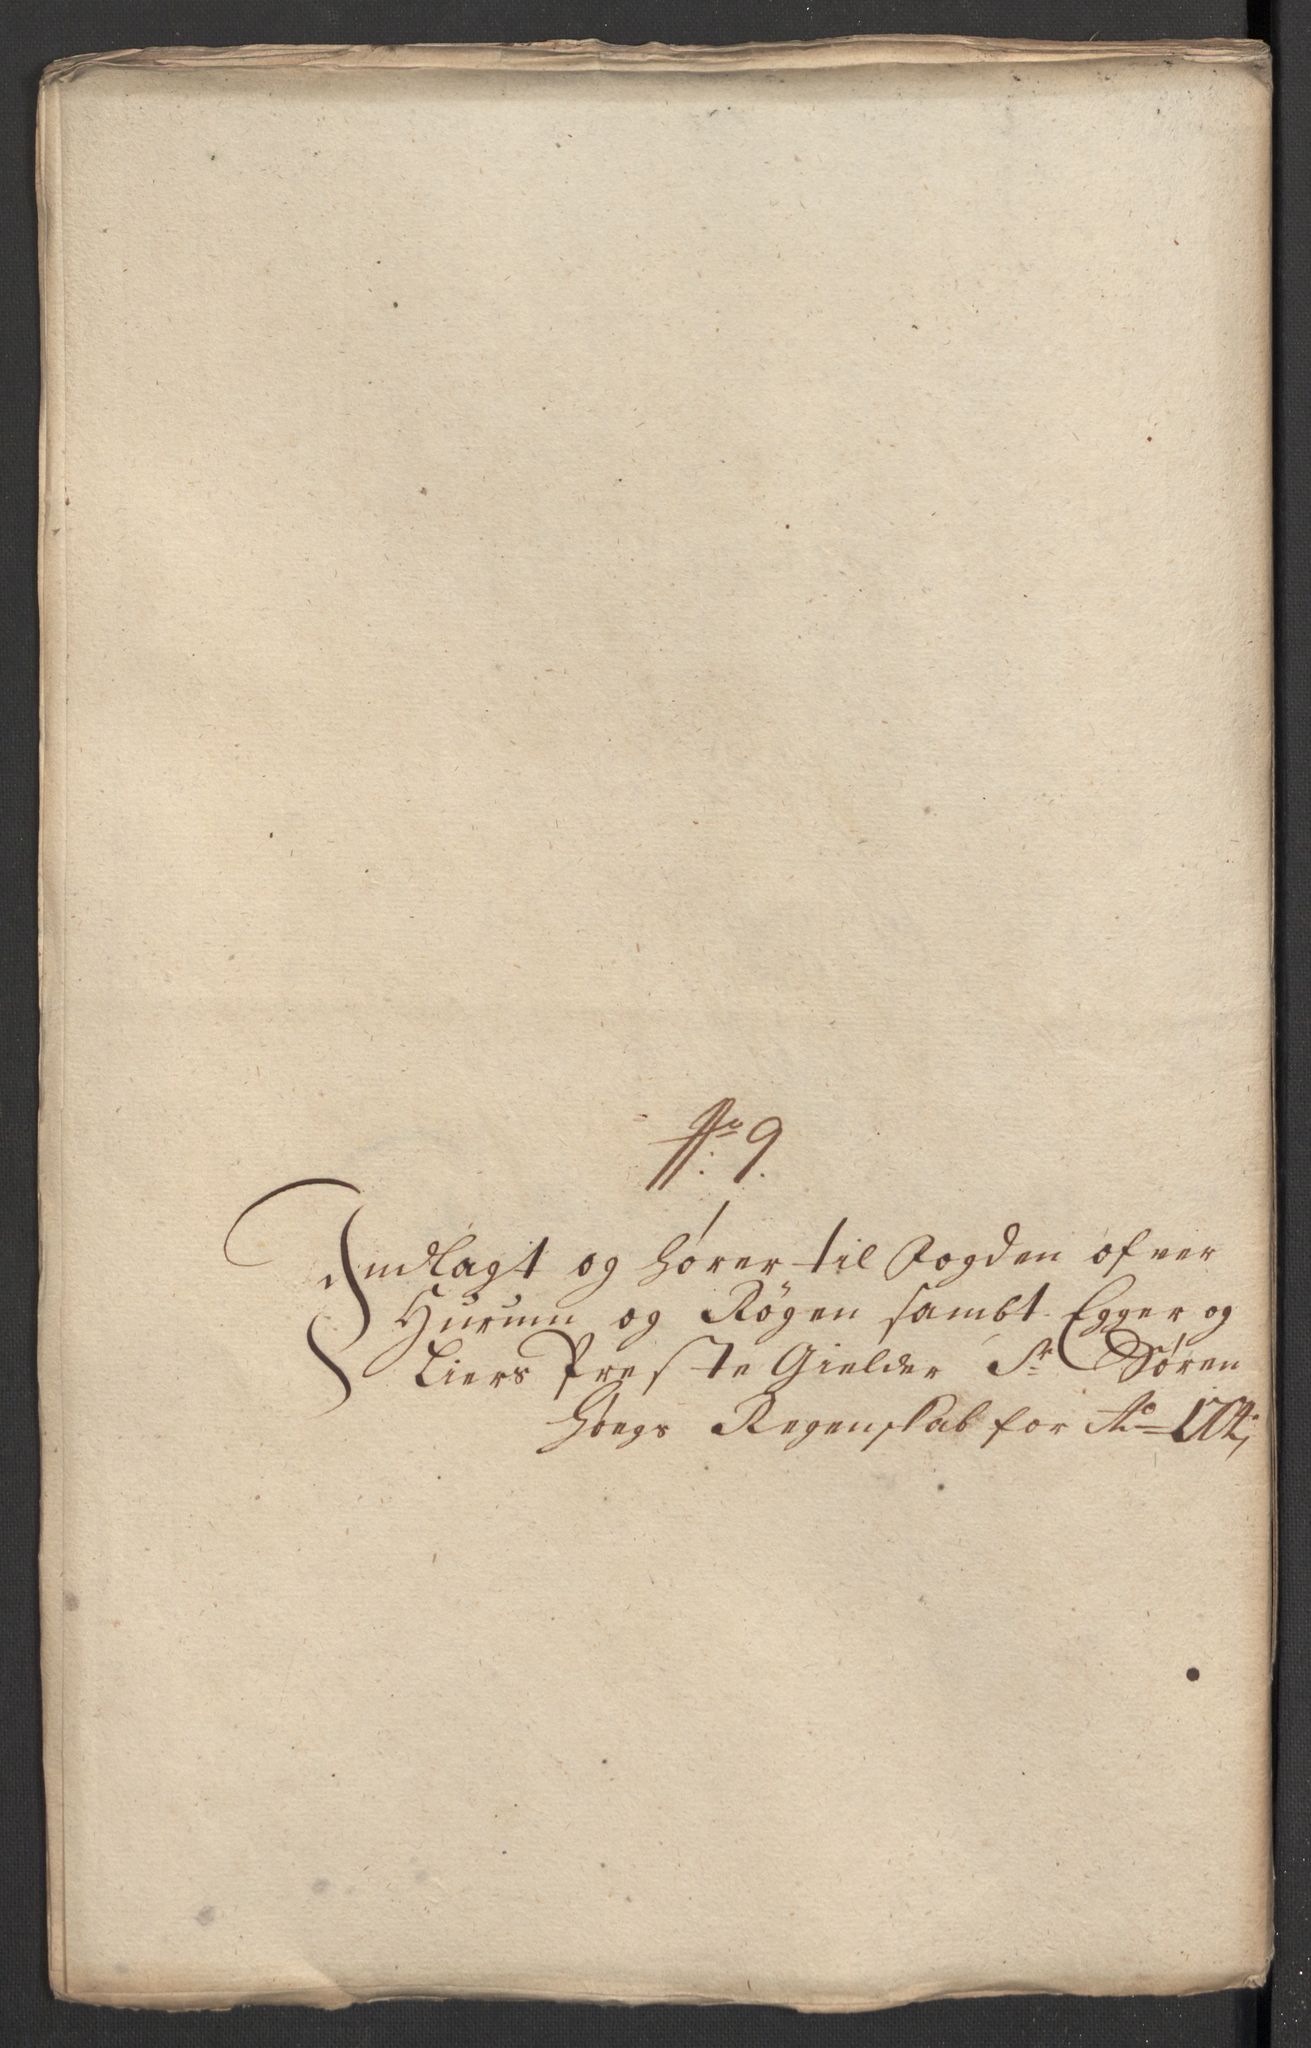 No: 9.
Indlagt og hører til Fogden ofver
Hurum og Røgen sambt Egger og
Liers Præste Gielder Sr Søren
Hoegs Regenskab for Ao